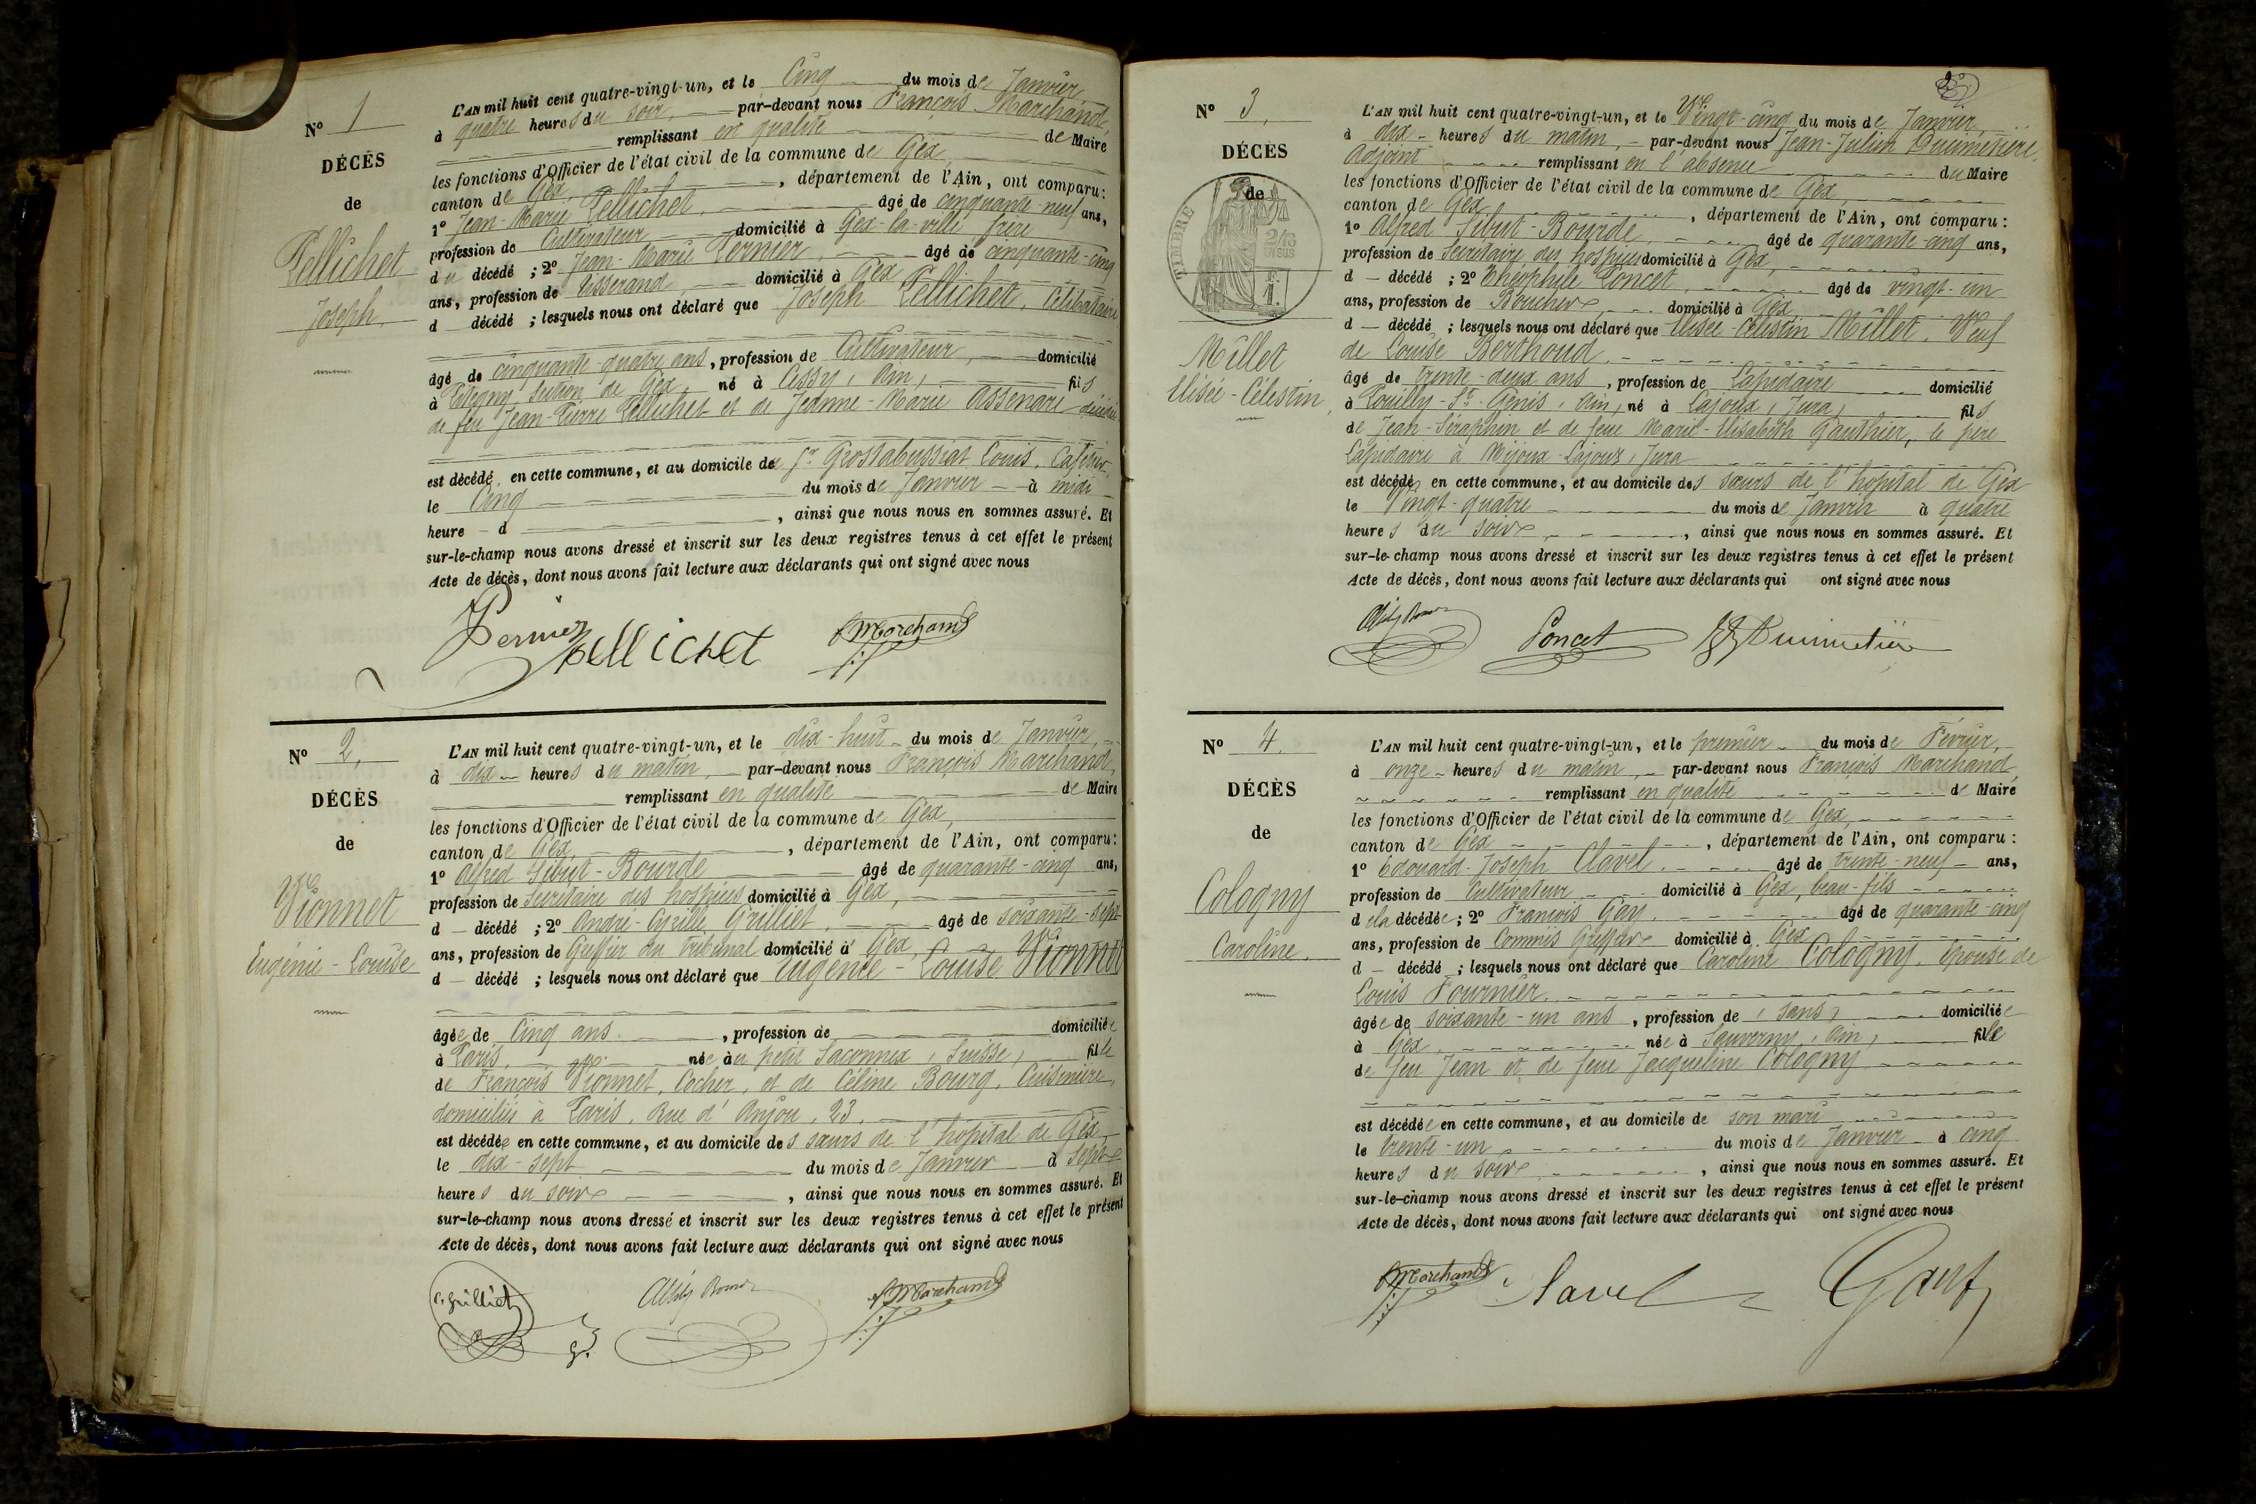 N° 1
DÉCÈS
de
Pellichet
Joseph.
L'AN mil huit cent quatre-vingt-un, et le Cinq du mois de Janvier
à quatre heures du soir, par-devant nous François Marchand,
remplissant en qualité de Maire
les fonctions d'Officier de l'état civil de la commune de Gex,
canton de Gex, département de l'Ain, ont comparu:
1° Jean-Marie Pellichet, âgé de cinquante-neuf ans,
profession de Cultivateur domicilié à Gex-la-ville, frère
du décédé ; 2° Jean-Marie Pernier, âgé de cinquante-cinq
ans, profession de Tisserand, domicilié à Gex
d décédé ; lesquels nous ont déclaré que Joseph Pellichet, Célibataire
âgé de cinquante-quatre ans, profession de Cultivateur, domicilié
à Pitegny, Section de Gex, né à Cessy, Ain, fils
de feu Jean-Pierre Pellichet et de Jeanne-Marie Assenare décédée
est décédé en cette commune, et au domicile de Sr Grostabussiat Louis, Cafetier
le Cinq du mois de Janvier à midi
heure d , ainsi que nous nous en sommes assuré. Et
sur-le-champ nous avons dressé et inscrit sur les deux registres tenus à cet effet le présent
Acte de décès, dont nous avons fait lecture aux déclarants qui ont signé avec nous
Pernier Pellichet Marchand
N° 2,
DÉCÈS
de
Vionnet
Eugénie-Louise
L'AN mil huit cent quatre-vingt-un, et le dix-huit du mois de Janvier,
à dix heures du matin, par-devant nous François Marchand,
remplissant en qualité de Maire
les fonctions d'Officier de l'état civil de la commune de Gex,
canton de Gex, département de l'Ain, ont comparu:
1° Alfred Sibut-Bourde âgé de quarante-cinq ans,
profession de Secrétaire des hospices domicilié à Gex,
d — décédé ; 2° André-Cyrille Grilliet, âgé de soixante-sept
ans, profession de Greffier du Tribunal domicilié à Gex,
d — décédé ; lesquels nous ont déclaré que Eugénie-Louise Vionnet
âgée de Cinq ans, profession de domiciliée
à Paris, née au petit Saconnex, Suisse, fille
de François Vionnet, Cocher, et de Céline Bourg, Cuisinière,
domiciliés à Paris, Rue d'Anjou, 23.
est décédée en cette commune, et au domicile des sœurs de l'hopital de Gex,
le dix-sept du mois de Janvier à sept
heures du soir, ainsi que nous nous en sommes assuré. Et
sur-le-champ nous avons dressé et inscrit sur les deux registres tenus à cet effet le présent
Acte de décès, dont nous avons fait lecture aux déclarants qui ont signé avec nous
C. Grilliet Marchand
N° 3,
DÉCÈS
de
TIMBRE
Millet
Elisée-Célestin,
L'AN mil huit cent quatre-vingt-un, et le Vingt-cinq du mois de Janvier,
à dix heures du matin, par-devant nous Jean-Julien Duimetière,
Adjoint remplissant en l'absence du Maire
les fonctions d'Officier de l'état civil de la commune de Gex,
canton de Gex, département de l'Ain, ont comparu :
1° Alfred Sibut-Bourde, âgé de quarante-cinq ans,
profession de Secrétaire des hospices domicilié à Gex,
d — décédé ; 2° Théophile Poncet, âgé de vingt-un
ans, profession de Boucher, domicilié à Gex
d — décédé ; lesquels nous ont déclaré que Elisée-Célestin Millet, Veuf
de Louise Berthoud
âgé de trente-deux ans, profession de Lapidaire domicilié
à Pouilly-St-Genis, Ain, né à Lajoux, Jura, fils
de Jean-Séraphin et de feue Marie-Elisabeth Gauthier, le père
Lapidaire à Mijoux-Lajoux, Jura
est décédé en cette commune, et au domicile des sœurs de l'hopital de Gex
le Vingt-quatre du mois de Janvier à quatre
heures du soir, ainsi que nous nous en sommes assuré. Et
sur-le-champ nous avons dressé et inscrit sur les deux registres tenus à cet effet le présent
Acte de décès, dont nous avons fait lecture aux déclarants qui ont signé avec nous
Poncet Duimetière
N° 4,
DÉCÈS
de
Cologny
Caroline,
L'AN mil huit cent quatre-vingt-un, et le premier du mois de Février,
à onze heures du matin, par-devant nous François Marchand,
remplissant en qualité de Maire
les fonctions d'Officier de l'état civil de la commune de Gex,
canton de Gex, département de l'Ain, ont comparu :
1° Edouard-Joseph Clavel, âgé de trente-neuf ans,
profession de Cultivateur domicilié à Gex, beau-fils
de la décédée ; 2° François Gay, âgé de quarante-cinq
ans, profession de Commis Greffier domicilié à Gex
d — décédé ; lesquels nous ont déclaré que Caroline Cologny, Epouse de
Louis Fournier,
âgée de soixante-un ans, profession de (sans) domiciliée
à Gex, née à Sauverny, Ain, fille
de feu Jean et de feue Jacqueline Cologny
est décédée en cette commune, et au domicile de son mari
le trente-un du mois de Janvier à cinq
heures du soir, ainsi que nous nous en sommes assuré. Et
sur-le-champ nous avons dressé et inscrit sur les deux registres tenus à cet effet le présent
Acte de décès, dont nous avons fait lecture aux déclarants qui ont signé avec nous
Marchand Clavel Gay